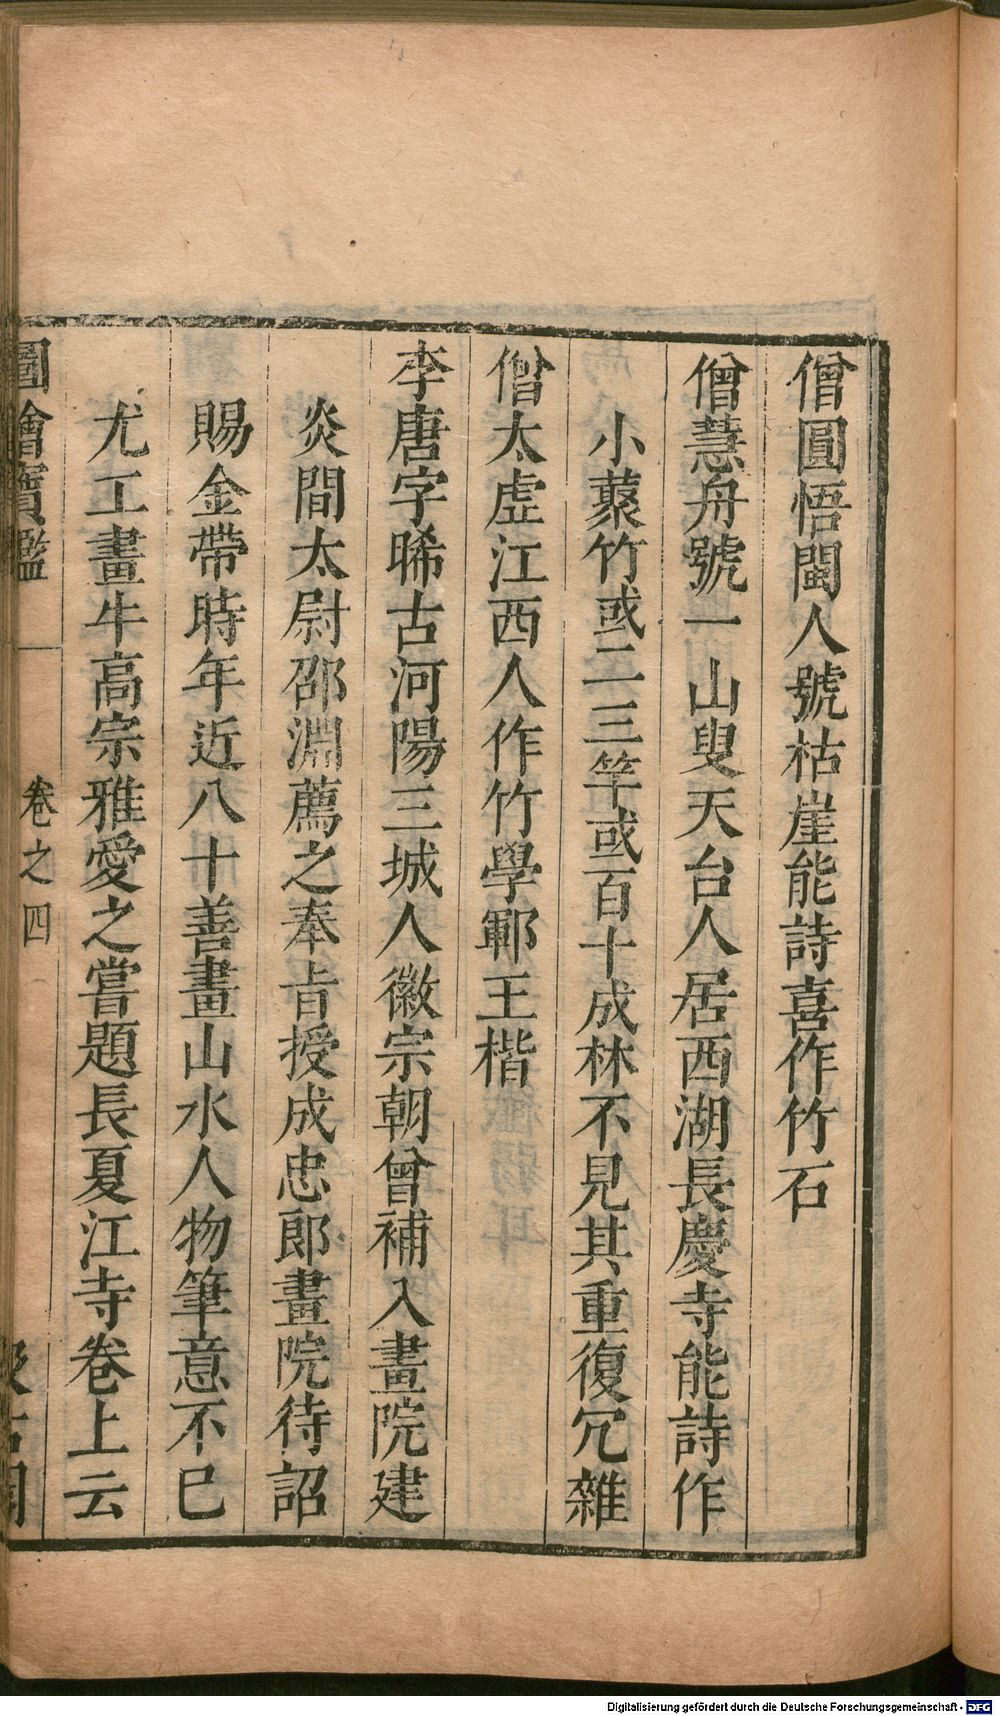 僧圓悟閩人號枯崖能詩喜作竹石
僧慧舟號一山叟天台人居西湖長慶寺能詩作
小䕺竹或二三竿或百十成林不見其重復冗雜
僧太虛江西人作竹學鄆王楷
李唐字晞古河陽三城人徽宗朝曾補入畫院建
炎間太尉邵淵薦之奉㫖授成忠郎畫院待詔
賜金帶時年近八十善畫山水人物筆意不巳
尤工畫牛高宗雅愛之嘗題長夏江寺卷上云
圖繪寶鑑
卷之四
汲古閣
Digitalisierung gefördert durch die Deutsche Forschungsgemeinschaft - DFG